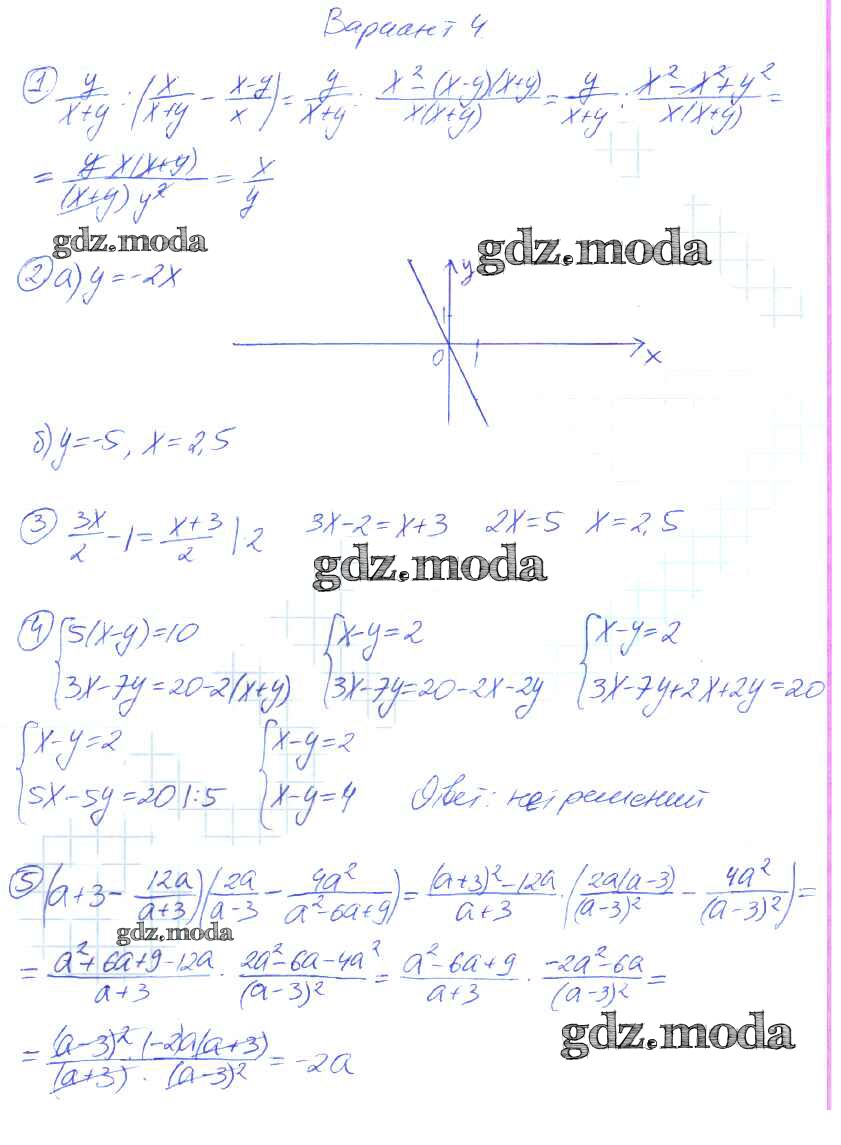 Вариант 4
① y/(x+y) : (x/(x+y) - (x-y)/x) = y/(x+y) : (x² - (x-y)(x+y))/(x(x+y)) = y/(x+y) : (x² - x² + y²)/(x(x+y)) =
= (y x(x+y))/((x+y) y²) = x/y
gdz.moda
gdz.moda
② а) y = -2x
y
1
0 1 x
б) y = -5, x = 2,5
③ 3x/2 - 1 = (x+3)/2 | 2 3x - 2 = x + 3 2x = 5 x = 2,5
gdz.moda
④ { 5(x-y) = 10 { x - y = 2 { x - y = 2
3x - 7y = 20 - 2(x+y) 3x - 7y = 20 - 2x - 2y 3x - 7y + 2x + 2y = 20
{ x - y = 2 { x - y = 2
5x - 5y = 20 | :5 x - y = 4 Ответ: нет решений
⑤ (a + 3 - 12a/(a+3)) (2a/(a-3) - 4a²/(a² - 6a + 9)) = ((a+3)² - 12a)/(a+3) · (2a(a-3)/(a-3)² - 4a²/(a-3)²) =
gdz.moda
= (a² + 6a + 9 - 12a)/(a+3) · (2a² - 6a - 4a²)/(a-3)² = (a² - 6a + 9)/(a+3) · (-2a² - 6a)/(a-3)² =
= ((a-3)² · (-2)a(a+3))/((a+3) · (a-3)²) = -2a
gdz.moda